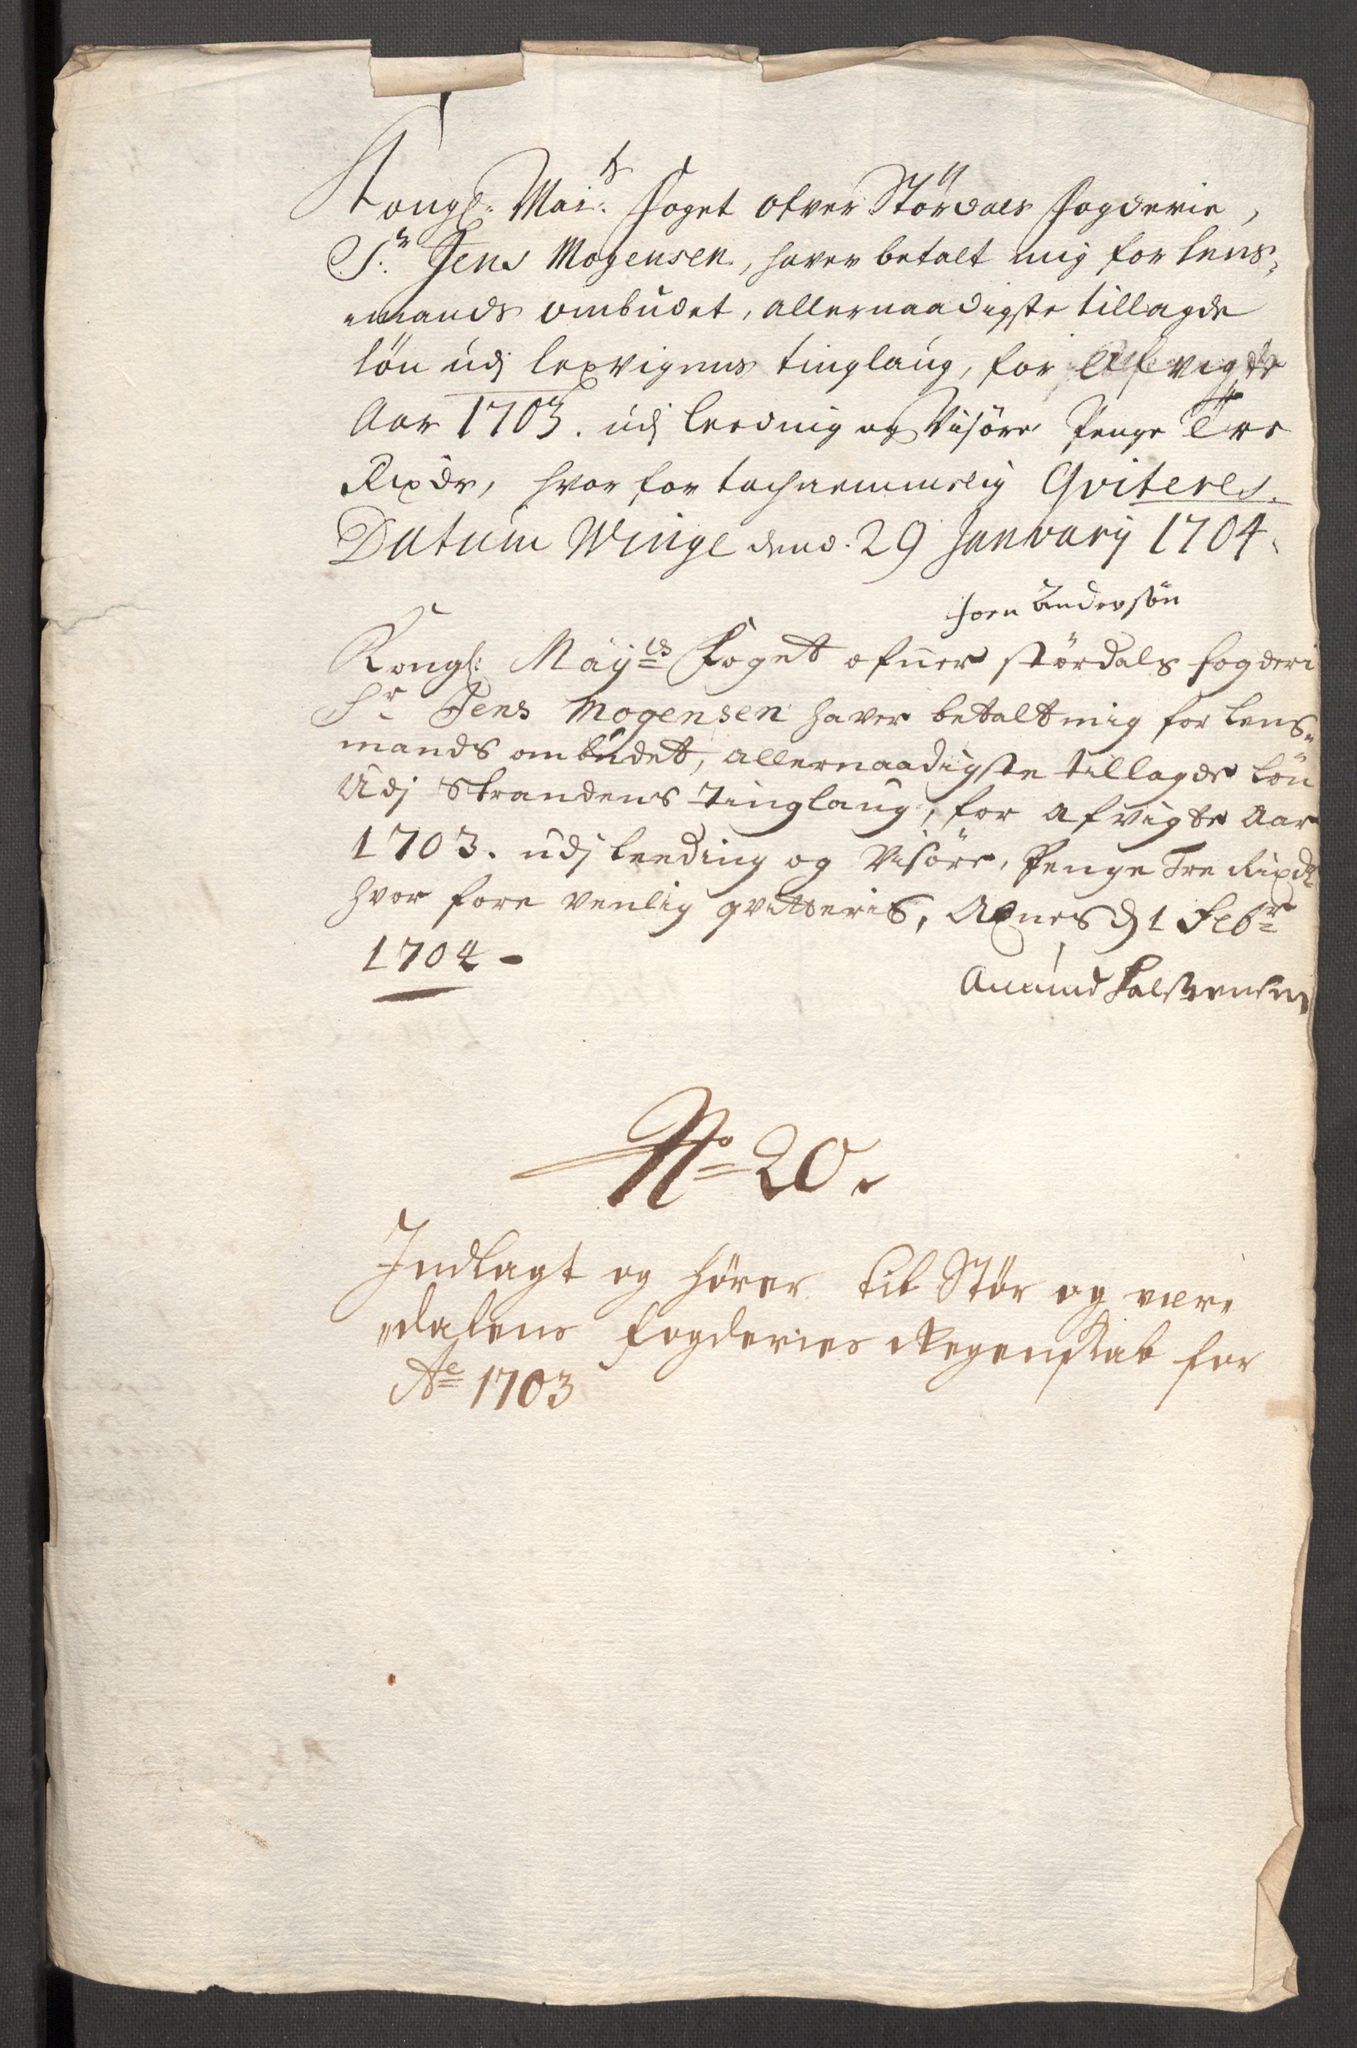 Kongl: Mai:ts foget ofver Stördals fogderie,
Sr: Jens Mogensen, haver betalt mig for lens„
mands ombudet, allernaadigste tillagde
lön udj lexvigens tinglaug, for afvigte
Aar 1703. udj leeding og Visöre Penge Tre
Rixdr, hvor for tachnemmelig Qviteres.
Datum Winge dend. 29 January 1704.
Joen Andersøn
Kongl: Mayts Foget ofuer stördals fogderi
Sr Jens Mogensen haver betalt mig for Lens„
mands ombudet, allernaadigste tillagde Lön
Udj Strandens Tinglaug, for afvigte Aar
1703. udj leeding og Visöre, Penge Tre Rixdr
hvor fore venlig qvitteris, Axnes d 1 Febr
1704 -
Amund Halstensen
No 20.
Indlagt og hörer til Stör og vær„
„dalens fogderies Regenskab for
Ao 1703